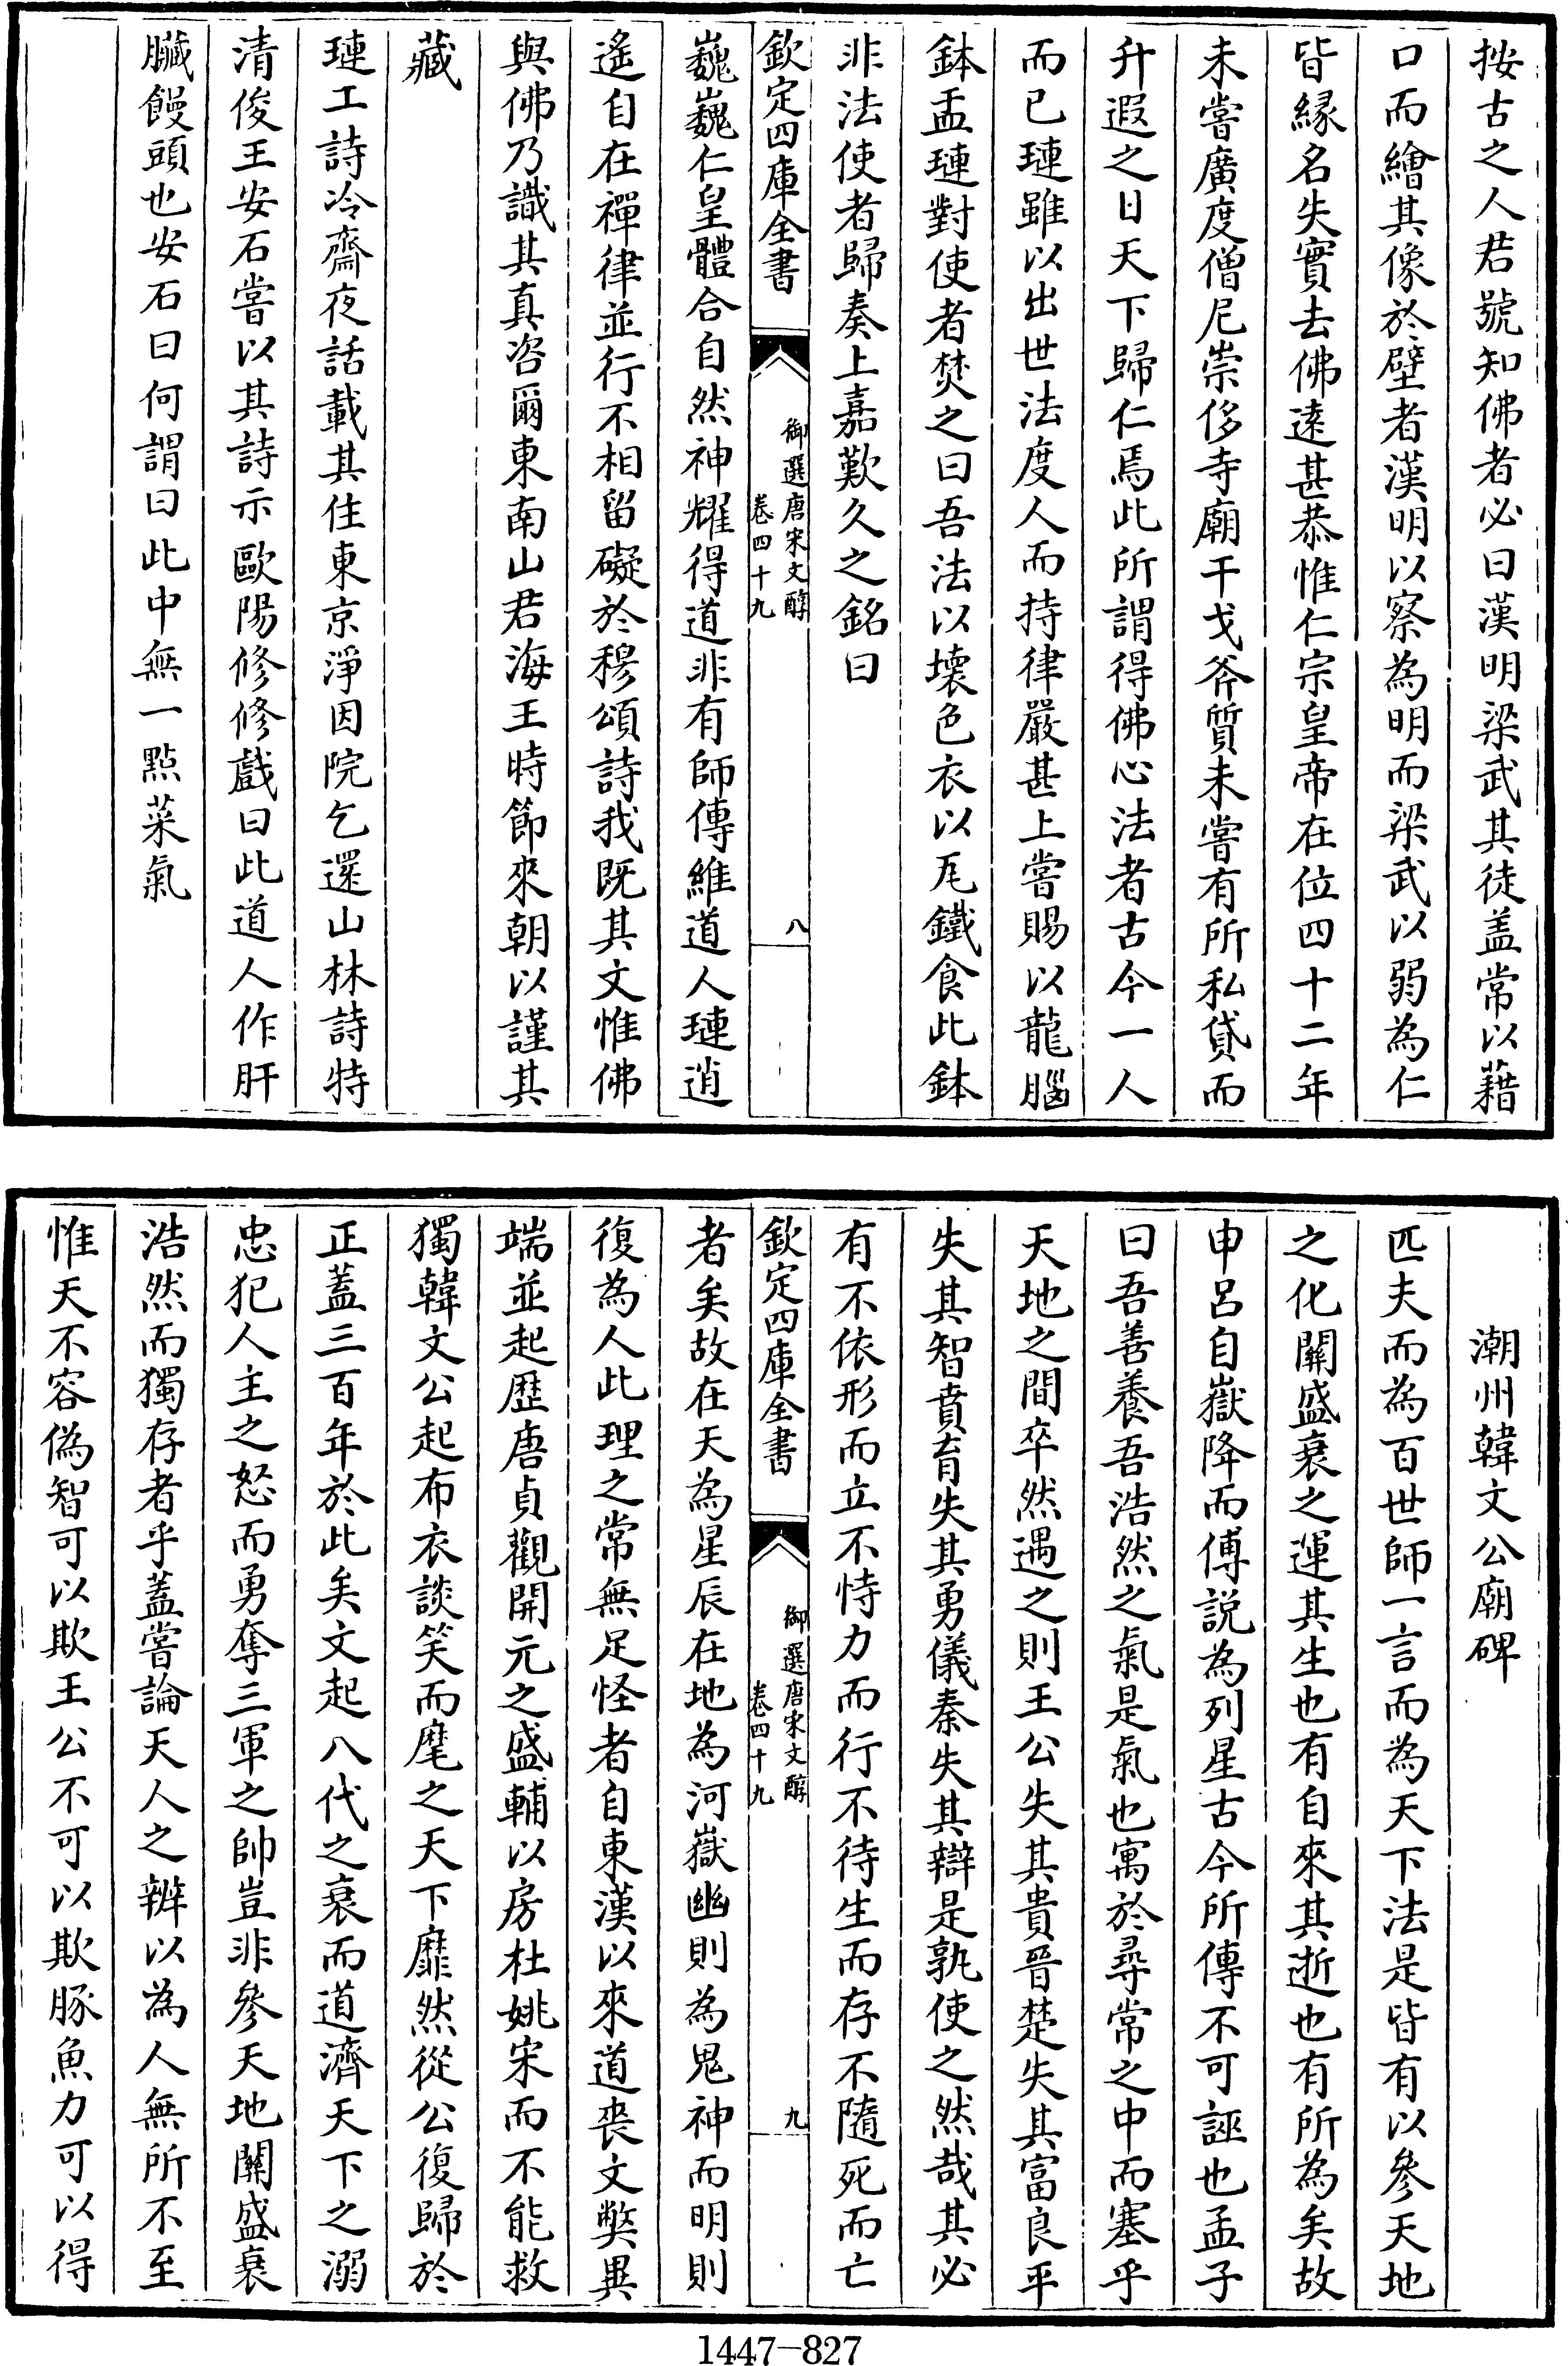 按古之人君號知佛者必曰漢明梁武其徒盖常以藉
口而繪其像於壁者漢明以察為明而梁武以弱為仁
皆緣名失實去佛遠甚恭惟仁宗皇帝在位四十二年
未嘗廣度僧尼崇侈寺廟干戈斧質未嘗有所私貸而
升遐之日天下歸仁焉此所謂得佛心法者古今一人
而已璉雖以出世法度人而持律嚴甚上嘗賜以龍腦
鉢盂璉對使者焚之曰吾法以壊色衣以瓦鐵食此鉢
非法使者歸奏上嘉歎久之銘曰
欽定四庫全書
御選唐宋文醇
卷四十九
八
巍巍仁皇體合自然神耀得道非有師傳維道人璉逍
遙自在禪律並行不相留礙於穆頌詩我既其文惟佛
與佛乃識其真咨爾東南山君海王時節來朝以謹其
藏
璉工詩冷齋夜話載其住東京淨因院乞還山林詩特
清俊王安石嘗以其詩示歐陽修修戲曰此道人作肝
臟饅頭也安石曰何謂曰此中無一點菜氣
潮州韓文公廟碑
匹夫而為百世師一言而為天下法是皆有以參天地
之化關盛衰之運其生也有自來其逝也有所為矣故
申呂自嶽降而傅説為列星古今所傳不可誣也孟子
曰吾善養吾浩然之氣是氣也寓於尋常之中而塞乎
天地之間卒然遇之則王公失其貴晉楚失其富良平
失其智賁育失其勇儀秦失其辯是孰使之然哉其必
有不依形而立不恃力而行不待生而存不隨死而亡
欽定四庫全書
御選唐宋文醇
卷四十九
九
者矣故在天為星辰在地為河嶽幽則為鬼神而明則
復為人此理之常無足怪者自東漢以來道喪文弊異
端並起歷唐貞觀開元之盛輔以房杜姚宋而不能救
獨韓文公起布衣談笑而麾之天下靡然從公復歸於
正蓋三百年於此矣文起八代之衰而道濟天下之溺
忠犯人主之怒而勇奪三軍之帥豈非參天地關盛衰
浩然而獨存者乎蓋嘗論天人之辨以為人無所不至
惟天不容偽智可以欺王公不可以欺豚魚力可以得
1447-827